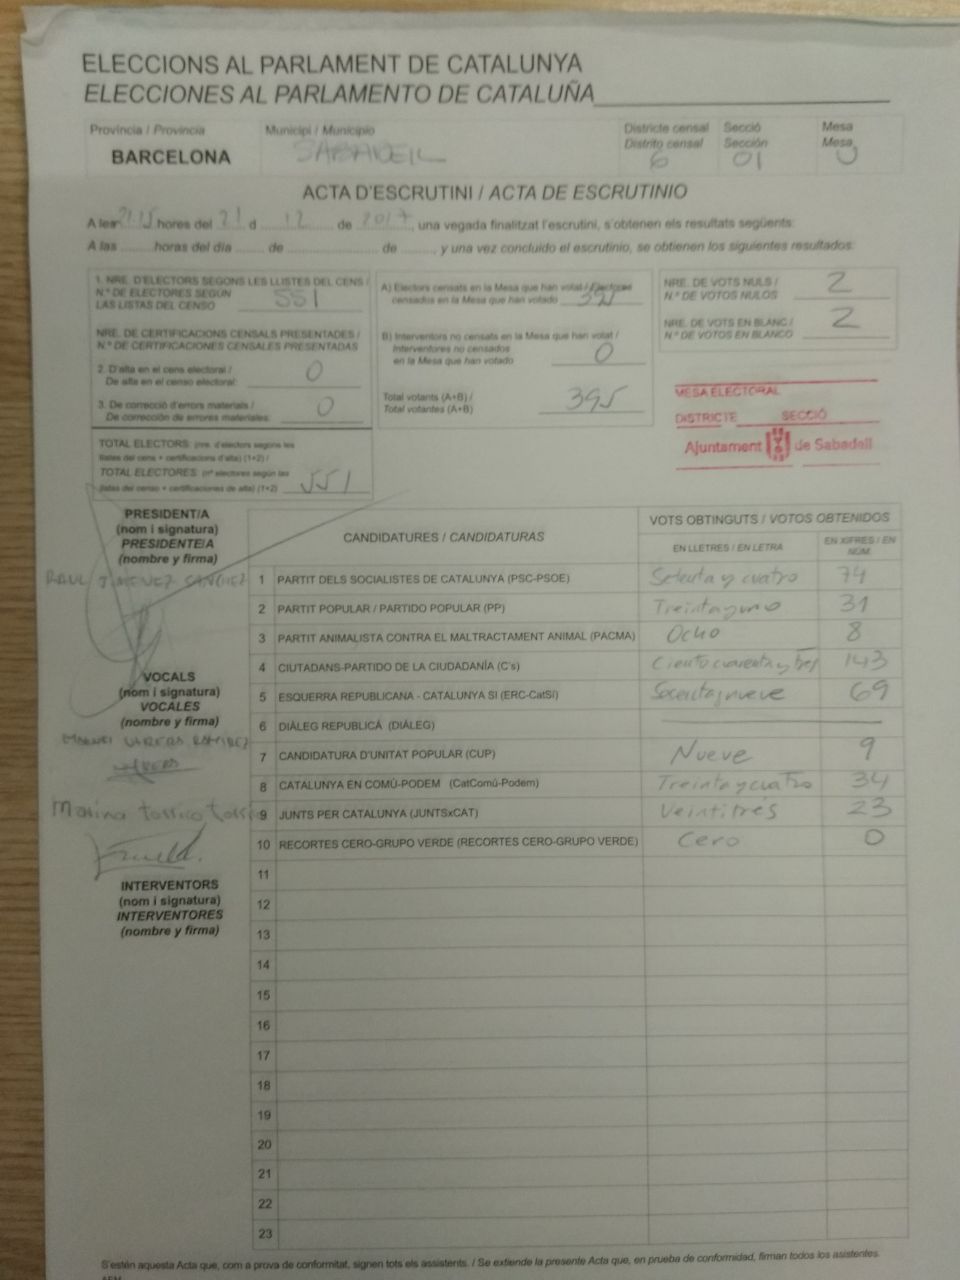 ELECCIONS AL PARLAMENT DE CATALUNYA
ELECCIONES AL PARLAMENTO DE CATALUÑA
Província / Provincia
BARCELONA
Municipi / Municipio
SABADELL
Districte censal
Distrito censal
6
Secció
Sección
01
Mesa
Mesa
U
ACTA D'ESCRUTINI / ACTA DE ESCRUTINIO
A les 21:15 hores del 21 d 12 de 2017, una vegada finalitzat l'escrutini, s'obtenen els resultats següents:
A las ........ horas del día ........ de ........ de ........, y una vez concluido el escrutinio, se obtienen los siguientes resultados:
1. NRE. D'ELECTORS SEGONS LES LLISTES DEL CENS /
N.º DE ELECTORES SEGÚN
LAS LISTAS DEL CENSO
551
NRE. DE CERTIFICACIONS CENSALS PRESENTADES /
N.º DE CERTIFICACIONES CENSALES PRESENTADAS
2. D'alta en el cens electoral /
De alta en el censo electoral:
0
3. De correcció d'errors materials /
De corrección de errores materiales:
0
TOTAL ELECTORS: (nre. d'electors segons les
llistes del cens + certificacions d'alta) (1+2) /
TOTAL ELECTORES: (nº electores según las
listas del censo + certificaciones de alta) (1+2)
551
A) Electors censats en la Mesa que han votat / Electores
censados en la Mesa que han votado
395
B) Interventors no censats en la Mesa que han votat /
Interventores no censados
en la Mesa que han votado
0
Total votants (A+B) /
Total votantes (A+B)
395
NRE. DE VOTS NULS /
N.º DE VOTOS NULOS
2
NRE. DE VOTS EN BLANC /
N.º DE VOTOS EN BLANCO
2
MESA ELECTORAL
DISTRICTE SECCIÓ
Ajuntament de Sabadell
PRESIDENT/A
(nom i signatura)
PRESIDENTE/A
(nombre y firma)
RAUL JIMENEZ SANCHEZ
VOCALS
(nom i signatura)
VOCALES
(nombre y firma)
RAMIREZ
Marina
INTERVENTORS
(nom i signatura)
INTERVENTORES
(nombre y firma)
CANDIDATURES / CANDIDATURAS
VOTS OBTINGUTS / VOTOS OBTENIDOS
EN LLETRES / EN LETRA
EN XIFRES / EN NÚM.
1 PARTIT DELS SOCIALISTES DE CATALUNYA (PSC-PSOE) Setenta y cuatro 74
2 PARTIT POPULAR / PARTIDO POPULAR (PP) Treinta y uno 31
3 PARTIT ANIMALISTA CONTRA EL MALTRACTAMENT ANIMAL (PACMA) Ocho 8
4 CIUTADANS-PARTIDO DE LA CIUDADANÍA (C's) Ciento cuarenta y tres 143
5 ESQUERRA REPUBLICANA - CATALUNYA SÍ (ERC-CatSí) Sesenta y nueve 69
6 DIÀLEG REPUBLICÀ (DIÀLEG)
7 CANDIDATURA D'UNITAT POPULAR (CUP) Nueve 9
8 CATALUNYA EN COMÚ-PODEM (CatComú-Podem) Treinta y cuatro 34
9 JUNTS PER CATALUNYA (JUNTSxCAT) Veintitrés 23
10 RECORTES CERO-GRUPO VERDE (RECORTES CERO-GRUPO VERDE) Cero 0
11
12
13
14
15
16
17
18
19
20
21
22
23
S'estén aquesta Acta que, com a prova de conformitat, signen tots els assistents. / Se extiende la presente Acta que, en prueba de conformidad, firman todos los asistentes.